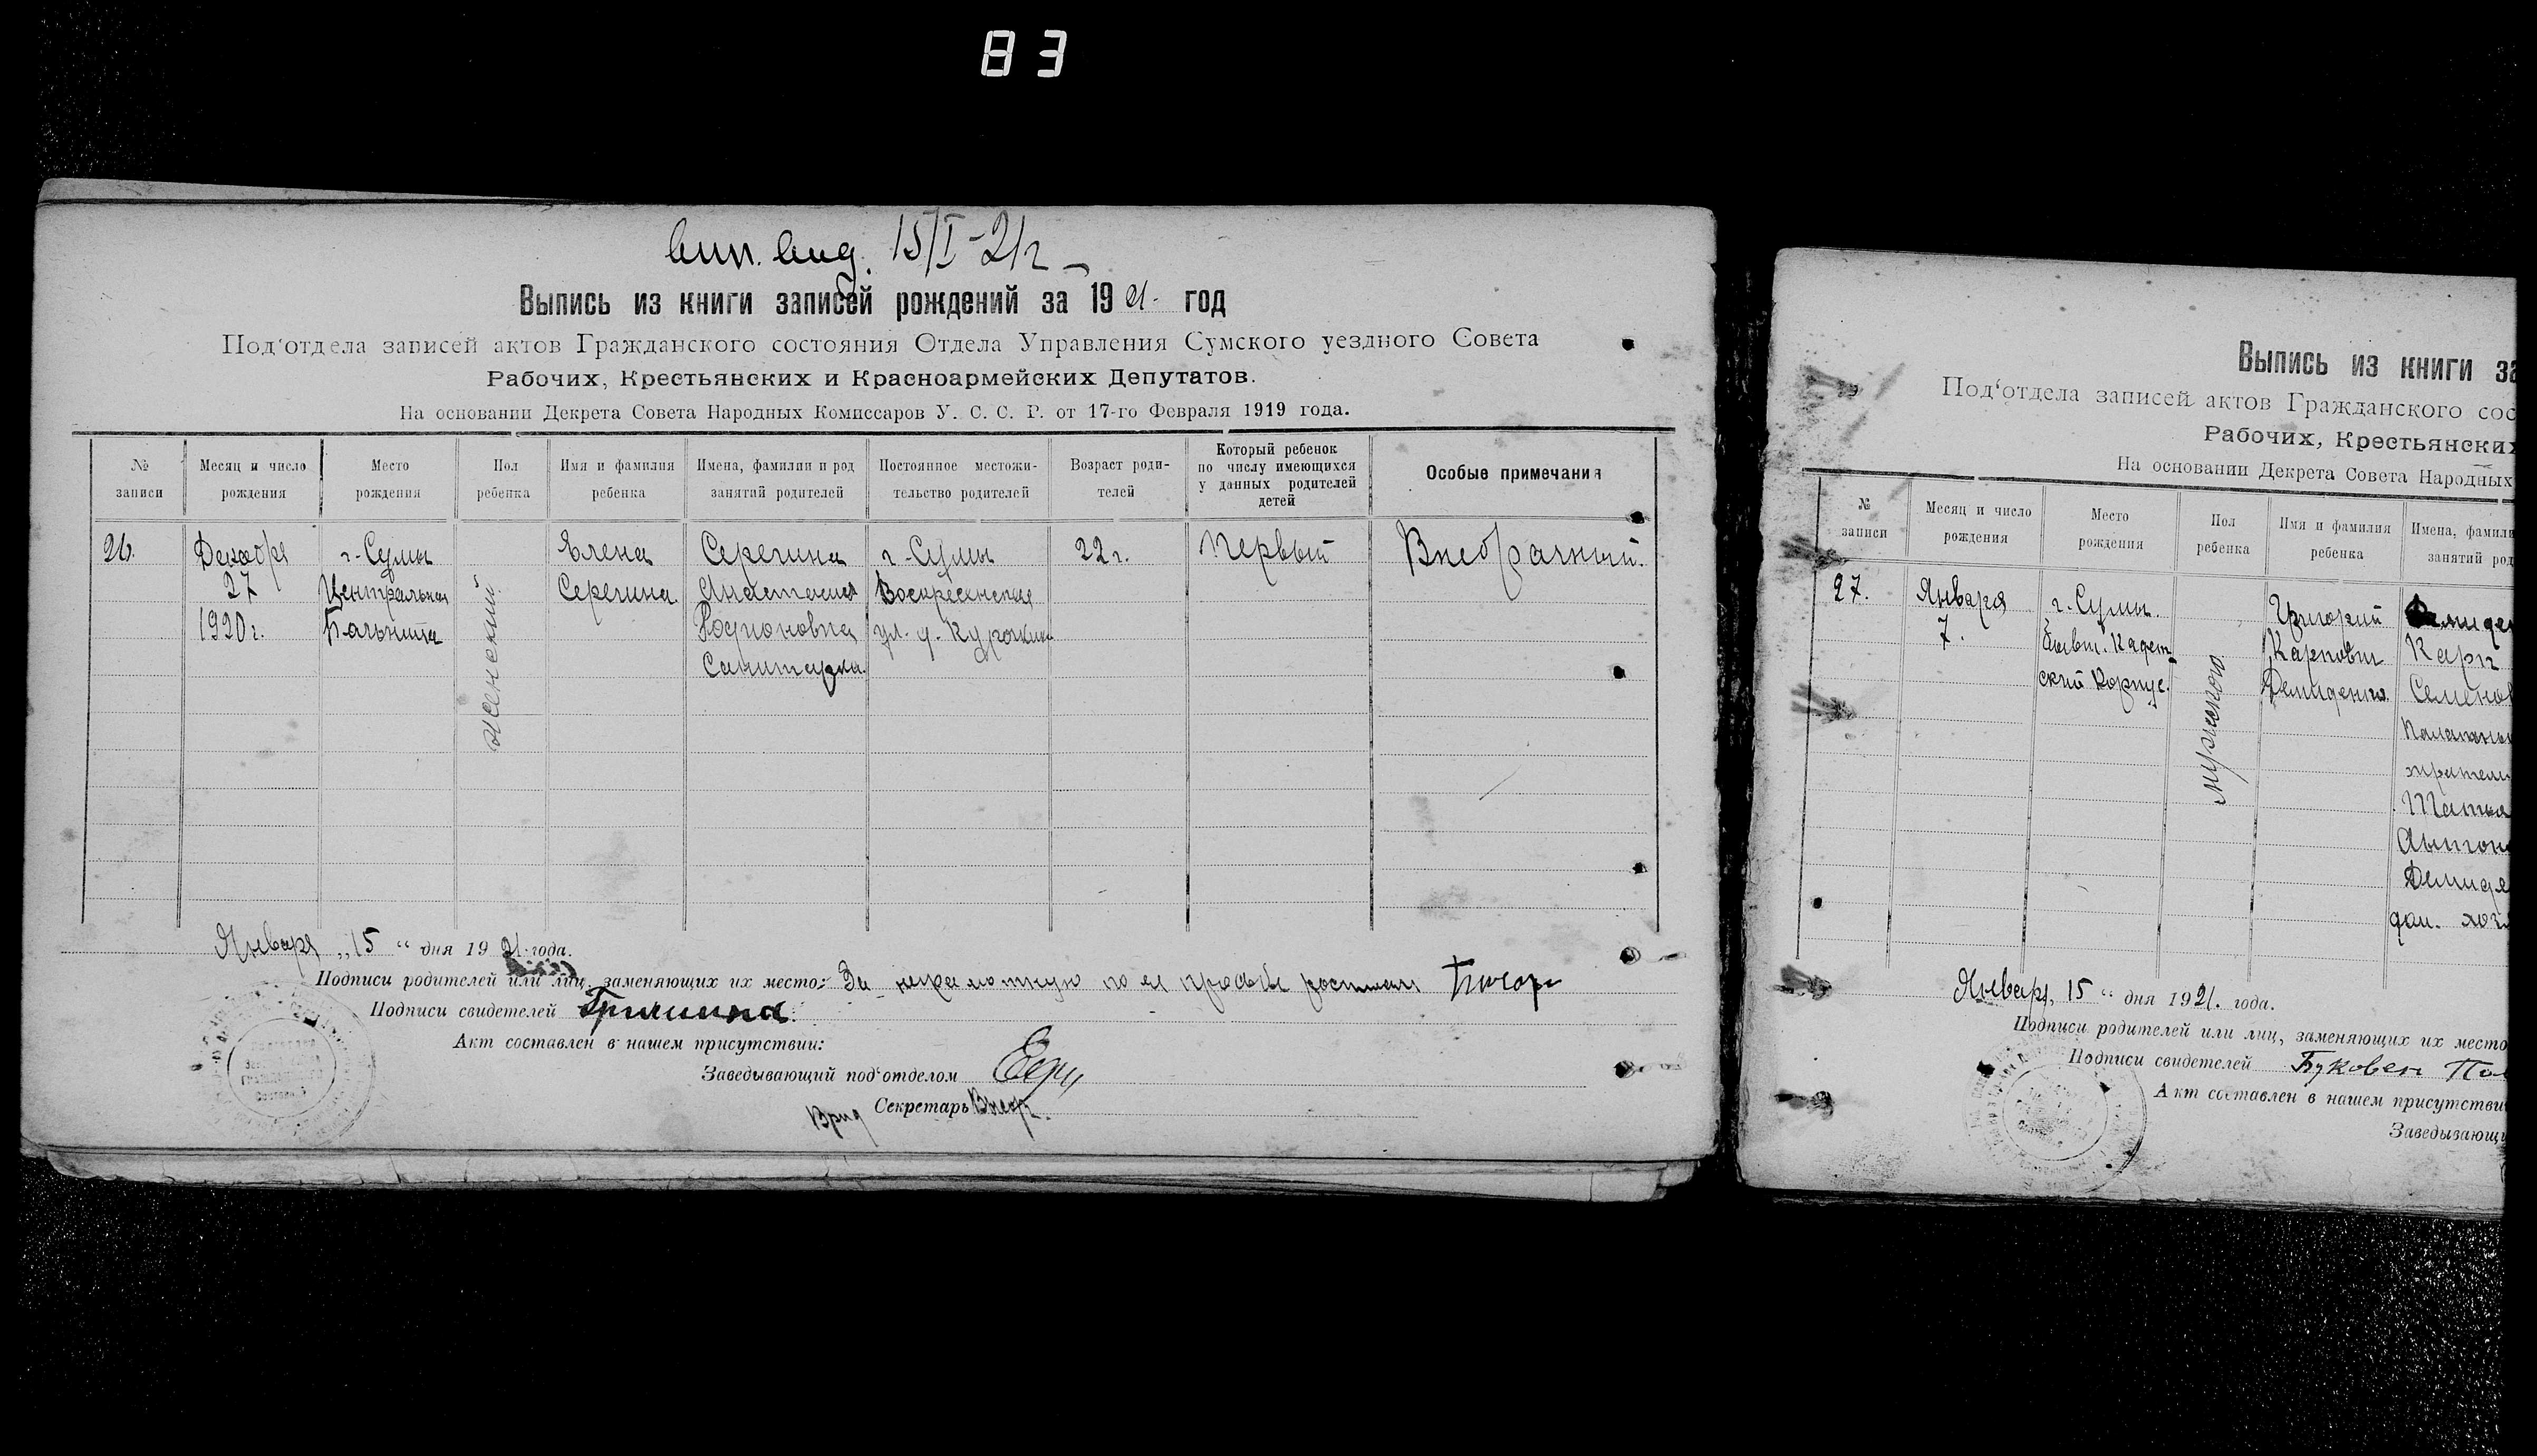 83
вып. выд. 15/I-21г
Выпись из книги записей рождений за 1921. год
Под‘отдела записей актов Гражданского состояния Отдела Управления Сумского уездного Совета
Рабочих, Крестьянских и Красноармейских Депутатов.
На основании Декрета Совета Народных Комиссаров У. С. С. Р. от 17-го Февраля 1919 года.
№ записи
Месяц и число рождения
Место рождения
Пол ребенка
Имя и фамилия ребенка
Имена, фамилии и род занятий родителей
Постоянное местожительство родителей
Возраст родителей
Который ребенок по числу имеющихся у данных родителей детей
Особые примечания
26.
Декабря
27
1920 г.
г. Сумы
Центральная
Больница
женский
Елена
Серегина
Серегина
Анастасия
Родионовна
Санитарка.
г. Сумы
Воскресенская
ул. д. Курочкина
22 г.
Первый
Внебрачный.
Января „15“ дня 1921. года.
Подписи родителей или лиц, заменяющих их место: За неграмотную по ея просьбе
Подписи свидетелей Гришина
Акт составлен в нашем присутствии:
Заведывающий под‘отделом
Врид Секретарь
Выпись из книги за
Под‘отдела записей актов Гражданского сос
Рабочих, Крестьянских
На основании Декрета Совета Народных
№ записи
Месяц и число рождения
Место рождения
Пол ребенка
Имя и фамилия ребенка
Имена, фамили
занятий род
27.
Января
7.
г. Сумы.
бывш. Кадет-
ский Корпус.
мужского
Григорий
Карпович
Демиденко
Демиден
Карп
Семенов
Татья
Антон
Демиде
дом. хозя
Января, 15“ дня 1921. года.
Подписи родителей или лиц, заменяющих их место
Подписи свидетелей Буковен
Акт составлен в нашем присутстви
Заведывающи